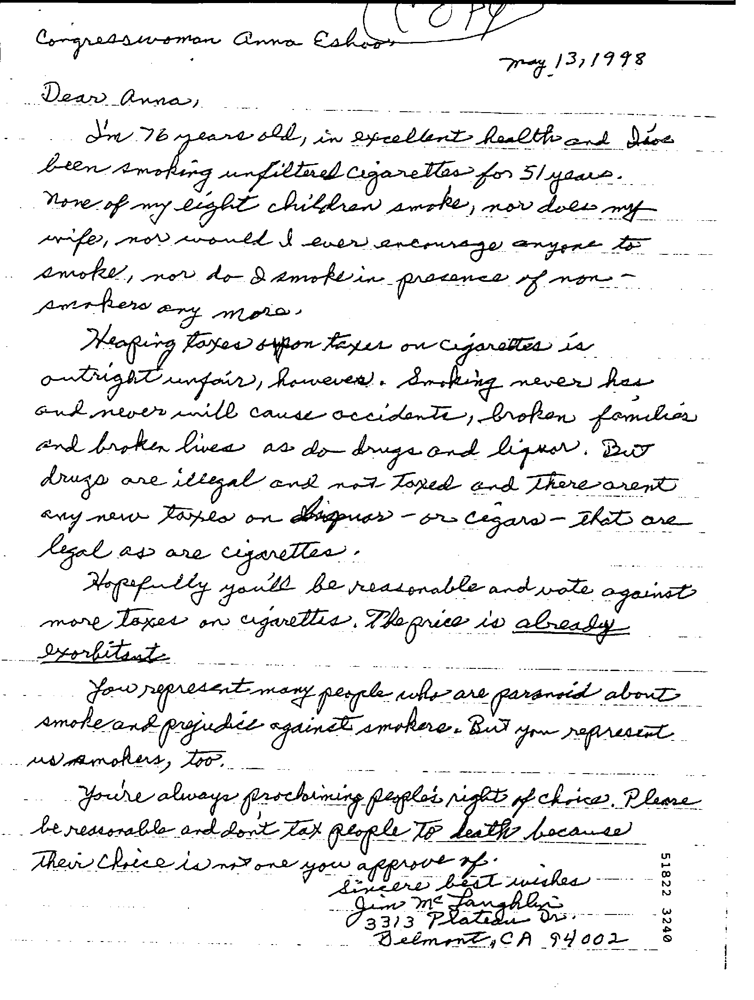 COPY
Congresswoman Anna Eshoo
May 13, 1998
Dear Anna,
I'm 76 years old, in excellent health and I've
been smoking unfiltered cigarettes for 51 years.
None of my eight children smoke, nor does my
wife, nor would I ever encourage anyone to
smoke, nor do I smoke in presence of non-
smokers any more.
Heaping taxes upon taxes on cigarettes is
outright unfair, however. Smoking never has
and never will cause accidents, broken families
and broken lives as do drugs and liquor. But
drugs are illegal and not taxed and there arent
any new taxes on liquor - or cigars - that are
legal as are cigarettes.
Hopefully you'll be reasonable and vote against
more taxes on cigarettes. The price is already
exorbitant.
You represent many people who are paranoid about
smoke and prejudice against smokers. But you represent
us smokers, too.
You're always proclaiming people's right of choice. Please
be reasonable and don't tax people to death because
their choice is not one you approve of.
Sincere best wishes
Jim McLaughlin
3313 Plateau Dr.
Belmont, CA 94002
51822 3240